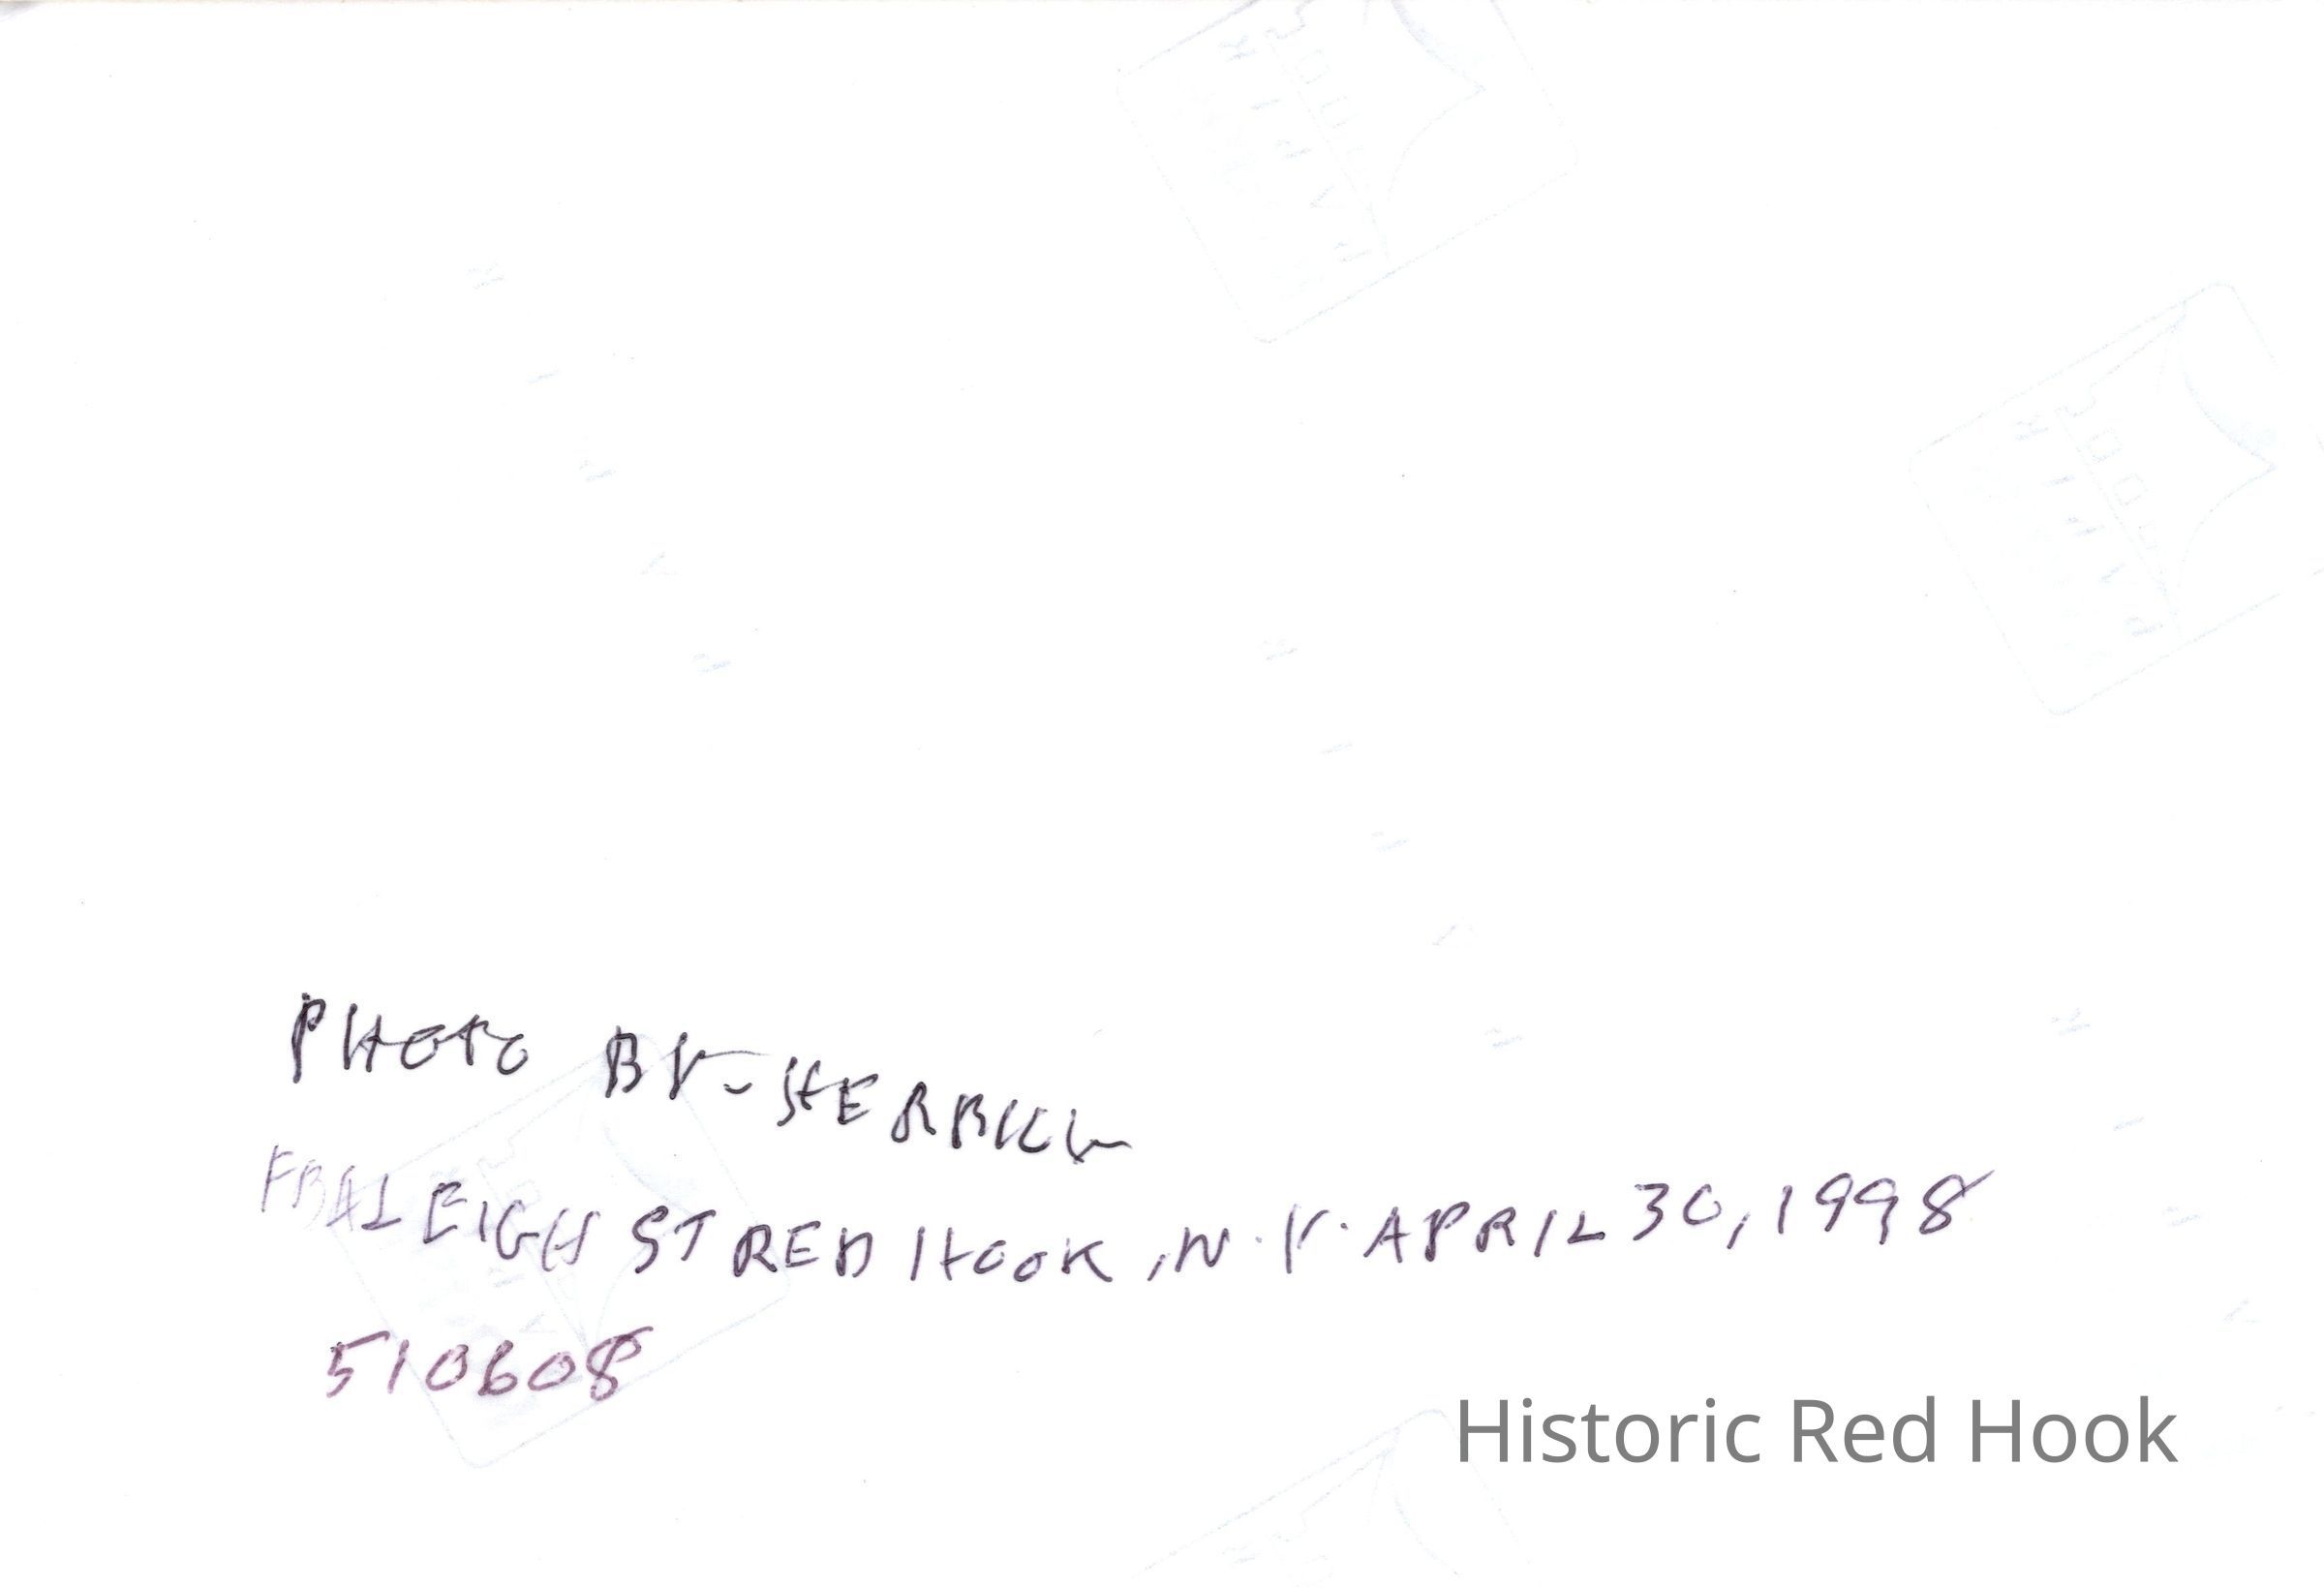 PHOTO BY-
FRALEIGH ST RED HOOK, N.Y. APRIL 30, 1998
510608
Historic Red Hook